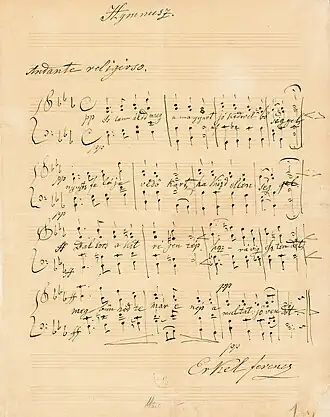 Hymnusz.
Andante religioso.
pp Isten áldd meg a magyart jó kedvvel bőséggel
pp nyujts feléje védő kart, ha küzd ellen séggel
ff Balsors a kit régen tép hozz rá víg esztendőt
ff meg bünhödte már e nép pp a multat s jövendőt
ppp
Erkel Ferencz